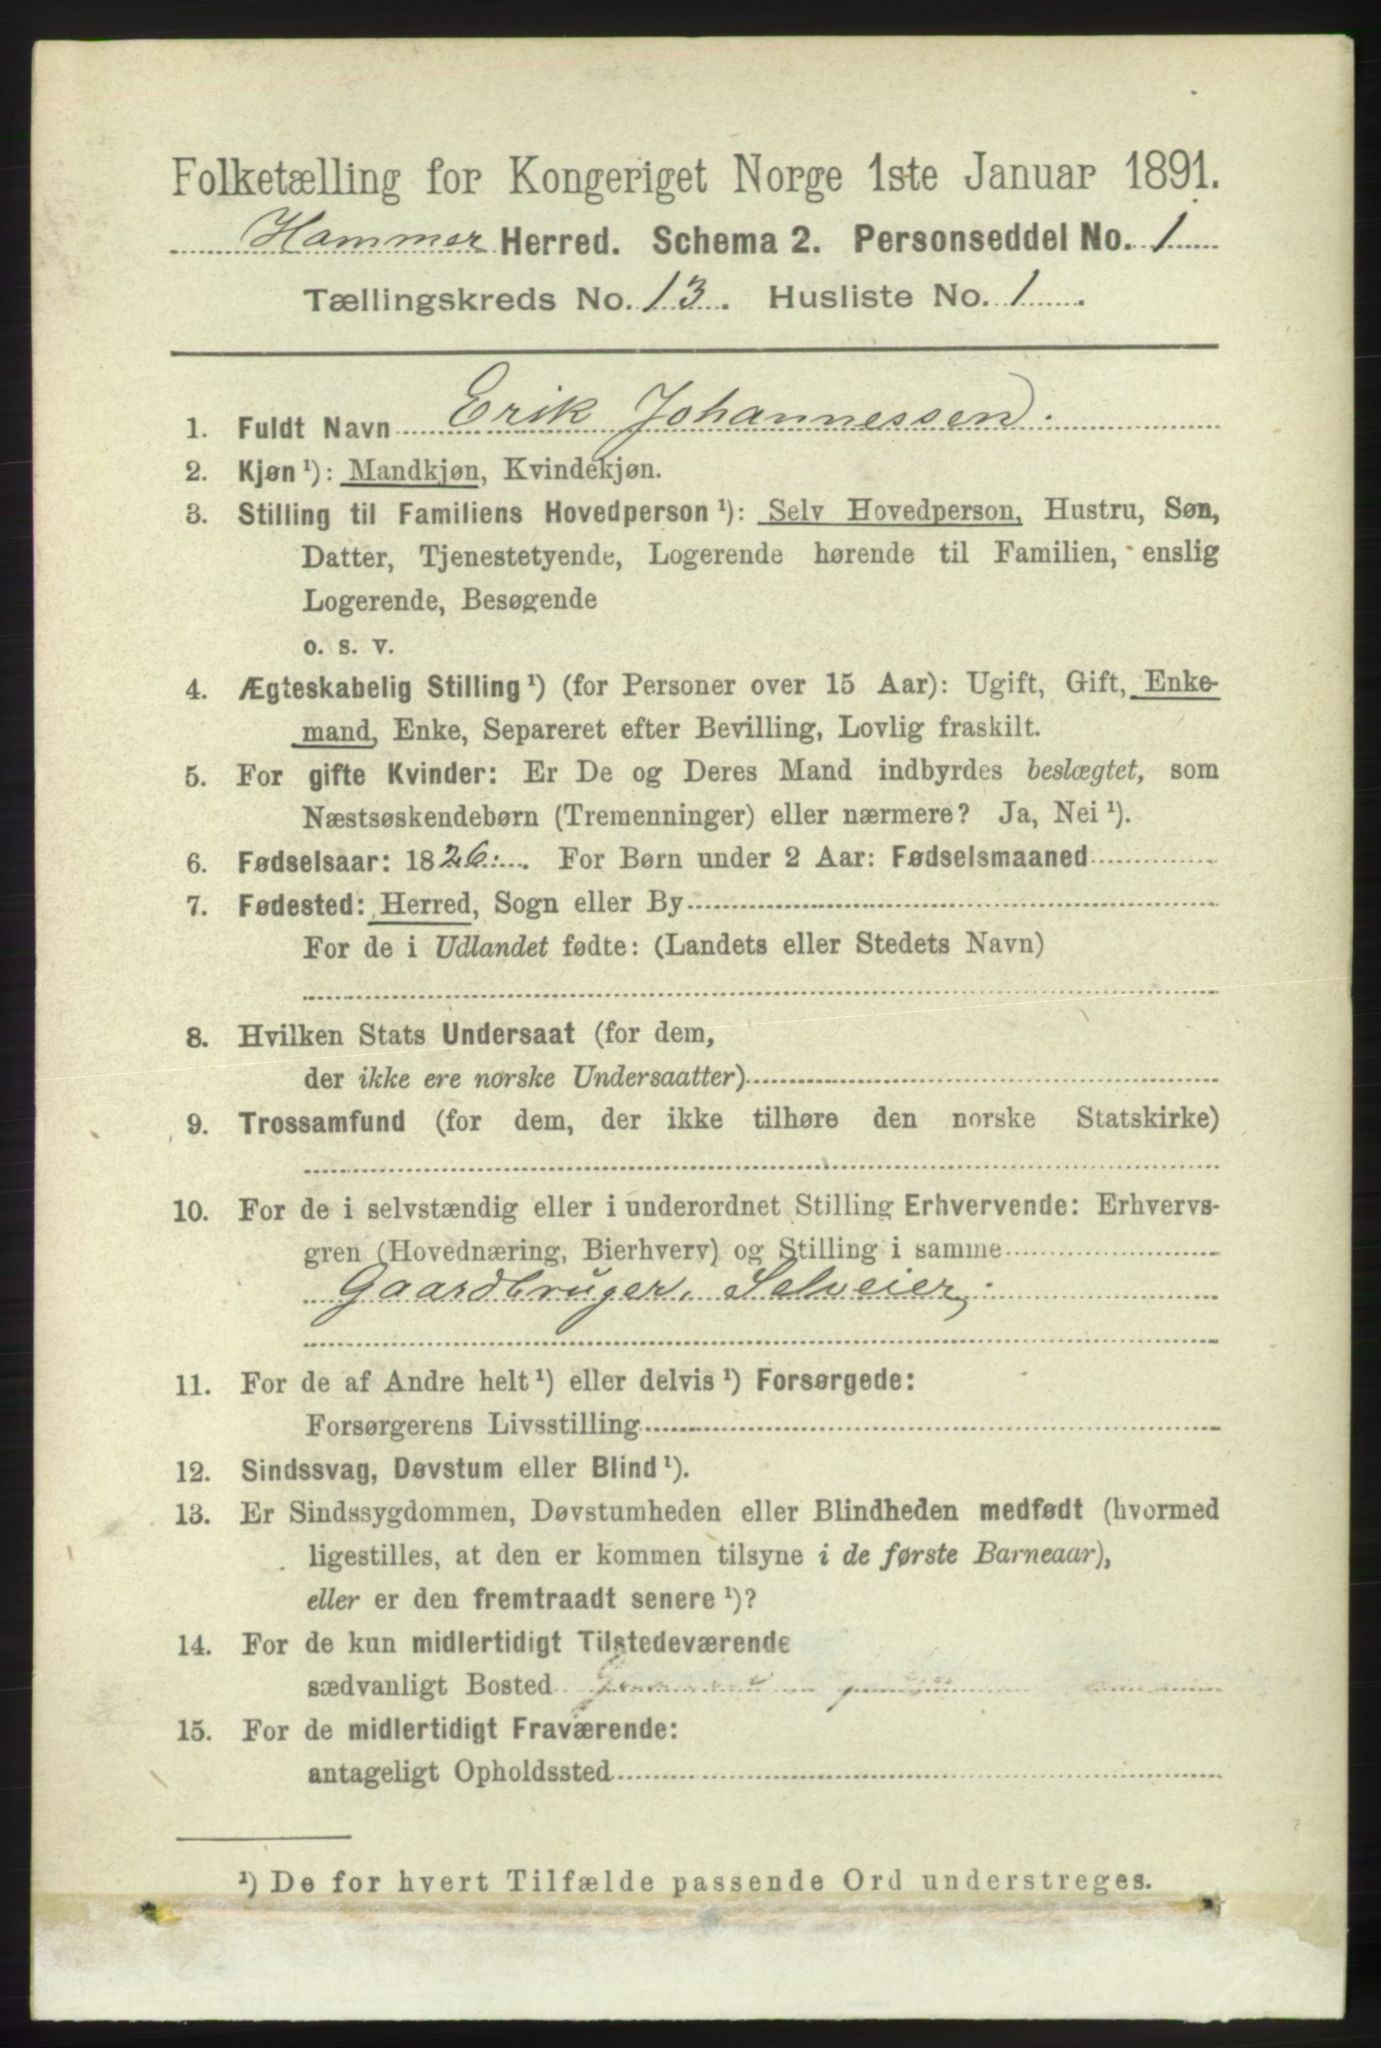 Folketælling for Kongeriget Norge 1ste Januar 1891.
Hammer Herred. Schema 2. Personseddel No. 1
Tællingskreds No. 13. Husliste No. 1.
1. Fuldt Navn Erik Johannessen.
2. Kjøn ¹): Mandkjøn, Kvindekjøn.
3. Stilling til Familiens Hovedperson ¹): Selv Hovedperson, Hustru, Søn,
Datter, Tjenestetyende, Logerende hørende til Familien, enslig
Logerende, Besøgende
o. s. v.
4. Ægteskabelig Stilling ¹) (for Personer over 15 Aar): Ugift, Gift, Enke-
mand, Enke, Separeret efter Bevilling, Lovlig fraskilt.
5. For gifte Kvinder: Er De og Deres Mand indbyrdes beslægtet, som
Næstsøskendebørn (Tremenninger) eller nærmere? Ja, Nei ¹).
6. Fødselsaar: 1826. For Børn under 2 Aar: Fødselsmaaned
7. Fødested: Herred, Sogn eller By
For de i Udlandet fødte: (Landets eller Stedets Navn)
8. Hvilken Stats Undersaat (for dem,
der ikke ere norske Undersaatter)
9. Trossamfund (for dem, der ikke tilhøre den norske Statskirke)
10. For de i selvstændig eller i underordnet Stilling Erhvervende: Erhvervs-
gren (Hovednæring, Bierhverv) og Stilling i samme
Gaardbruger, Selveier,
11. For de af Andre helt ¹) eller delvis ¹) Forsørgede:
Forsørgerens Livsstilling
12. Sindssvag, Døvstum eller Blind ¹).
13. Er Sindssygdommen, Døvstumheden eller Blindheden medfødt (hvormed
ligestilles, at den er kommen tilsyne i de første Barneaar),
eller er den fremtraadt senere ¹)?
14. For de kun midlertidigt Tilstedeværende
sædvanligt Bosted
15. For de midlertidigt Fraværende:
antageligt Opholdssted
¹) De for hvert Tilfælde passende Ord understreges.